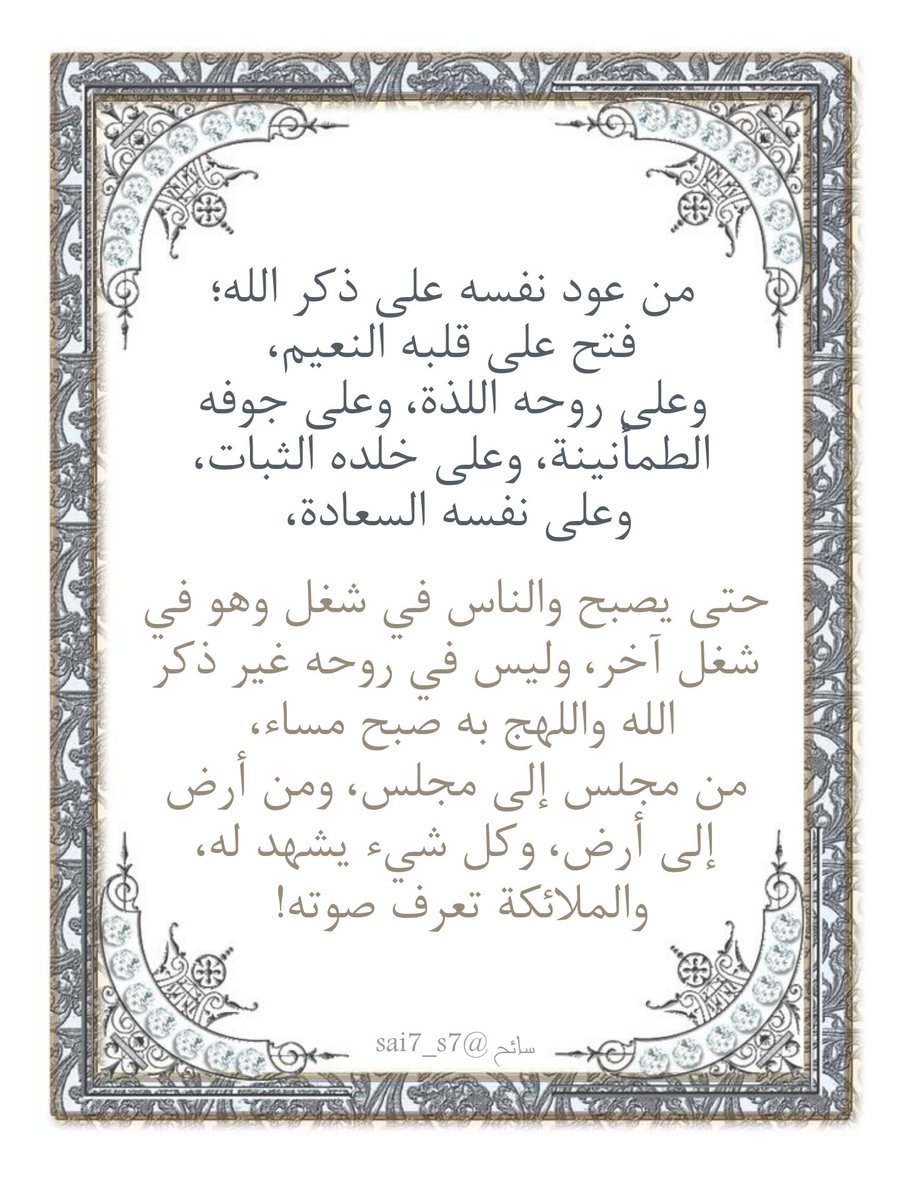 من عود نفسه على ذكر الله؛
فتح على قلبه النعيم،
وعلى روحه اللذة، وعلى جوفه
الطمأنينة، وعلى خلده الثبات،
وعلى نفسه السعادة،
حتى يصبح والناس في شغل وهو في
شغل آخر، وليس في روحه غير ذكر
الله واللهج به صبح مساء،
من مجلس إلى مجلس، ومن أرض
إلى أرض، وكل شيء يشهد له،
والملائكة تعرف صوته!
سائح @sai7_s7